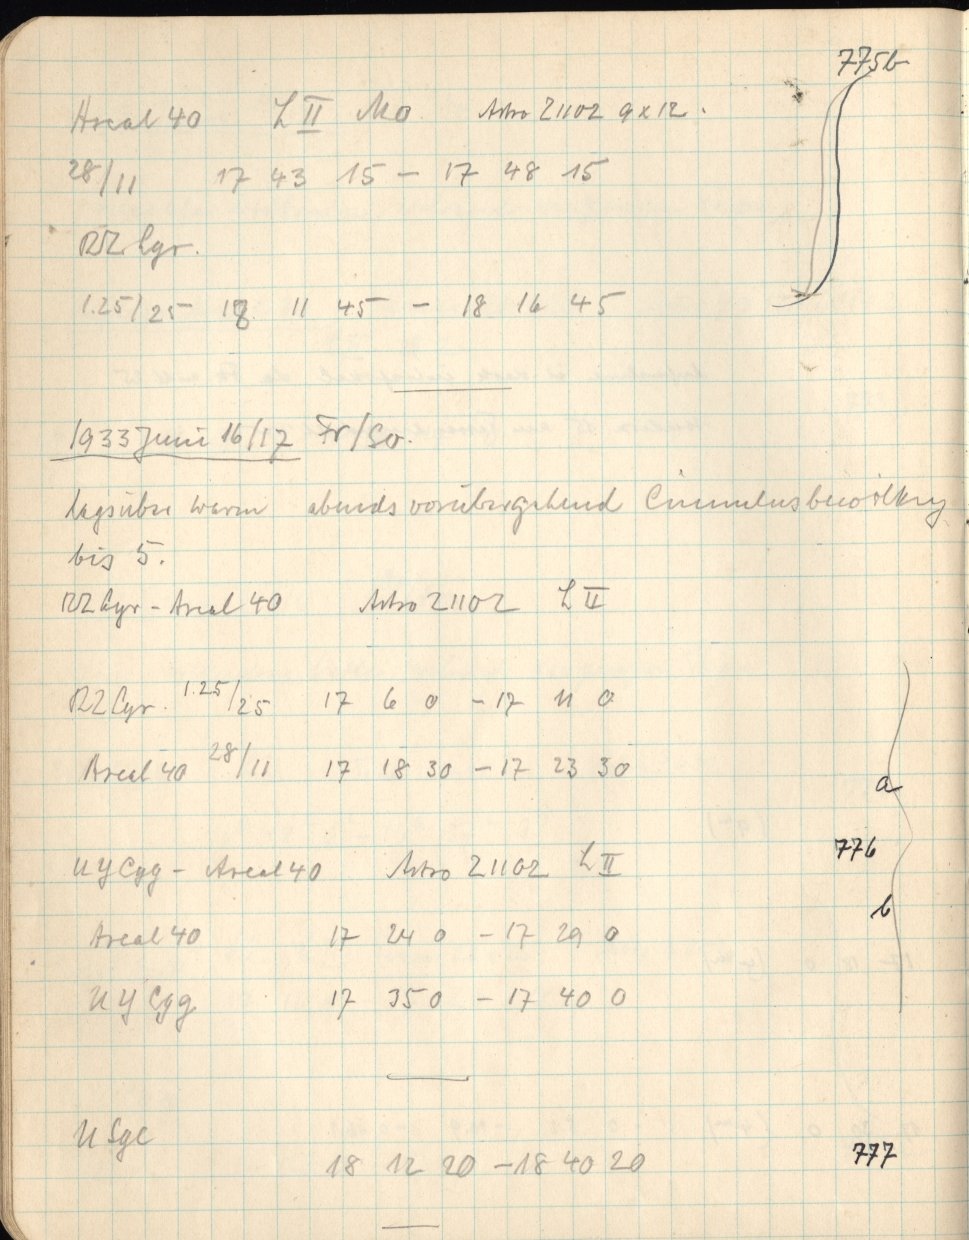 775b
Areal 40 L II Mo Astro 21102 9x12.
28/11 17 43 15 – 17 48 15
RZ Lyr.
1.25/25 18 11 45 – 18 16 45
1933 Juni 16/17 Fr/So.
tagsüber warm abends vorübergehend Cumulusbewölkung
bis 5.
RZ Lyr – Areal 40 Astro 21102 L II
RZ Lyr. 1.25/25 17 6 0 – 17 11 0
Areal 40 28/11 17 18 30 – 17 23 30
a
776
UY Cyg – Areal 40 Astro 21102 L II
b
Areal 40 17 24 0 – 17 29 0
UY Cyg 17 35 0 – 17 40 0
U Sge
18 12 20 – 18 40 20 777